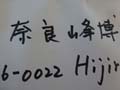 奈良峰博
6-0022 Hijir